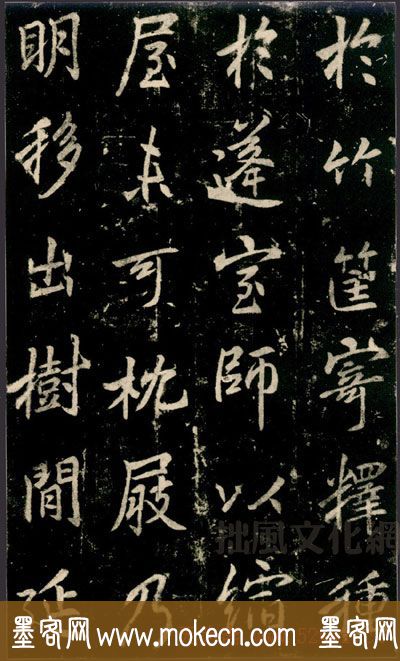 於竹筐寄釋種
於蓬室師以縮
屋未可枕乃
明移出樹間延
拙風文化網
墨客网 www.mokecn.com 墨客网